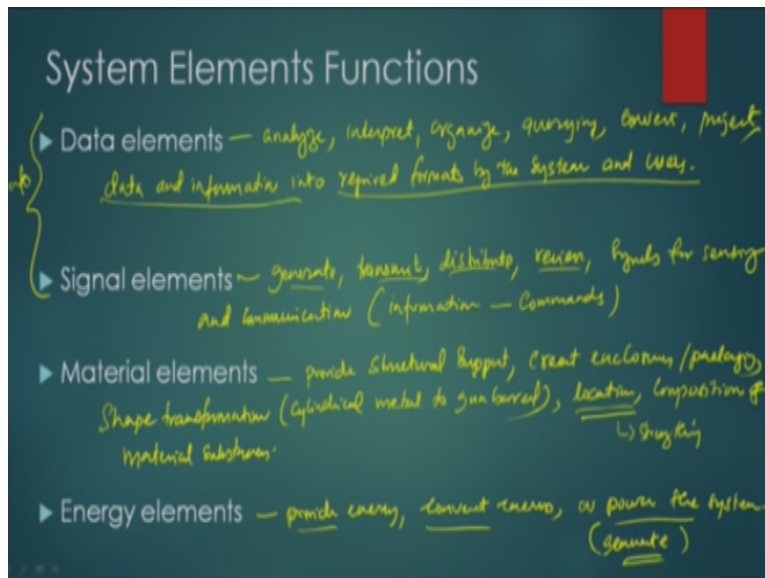 System Elements Functions
▶ Data elements – analyze, interpret, organize, querying, convert, project
data and information into required formats by the system and users.
▶ Signal elements – generate, transmit, distribute, receive, signals for sensing
and communication (information – commands)
▶ Material elements – provide structural support, create enclosures /
Shape transformation (cylindrical metal to gun barrel), location, composition of
material substances.
▶ Energy elements – provide energy, convert energy, or power the system.
(generate)